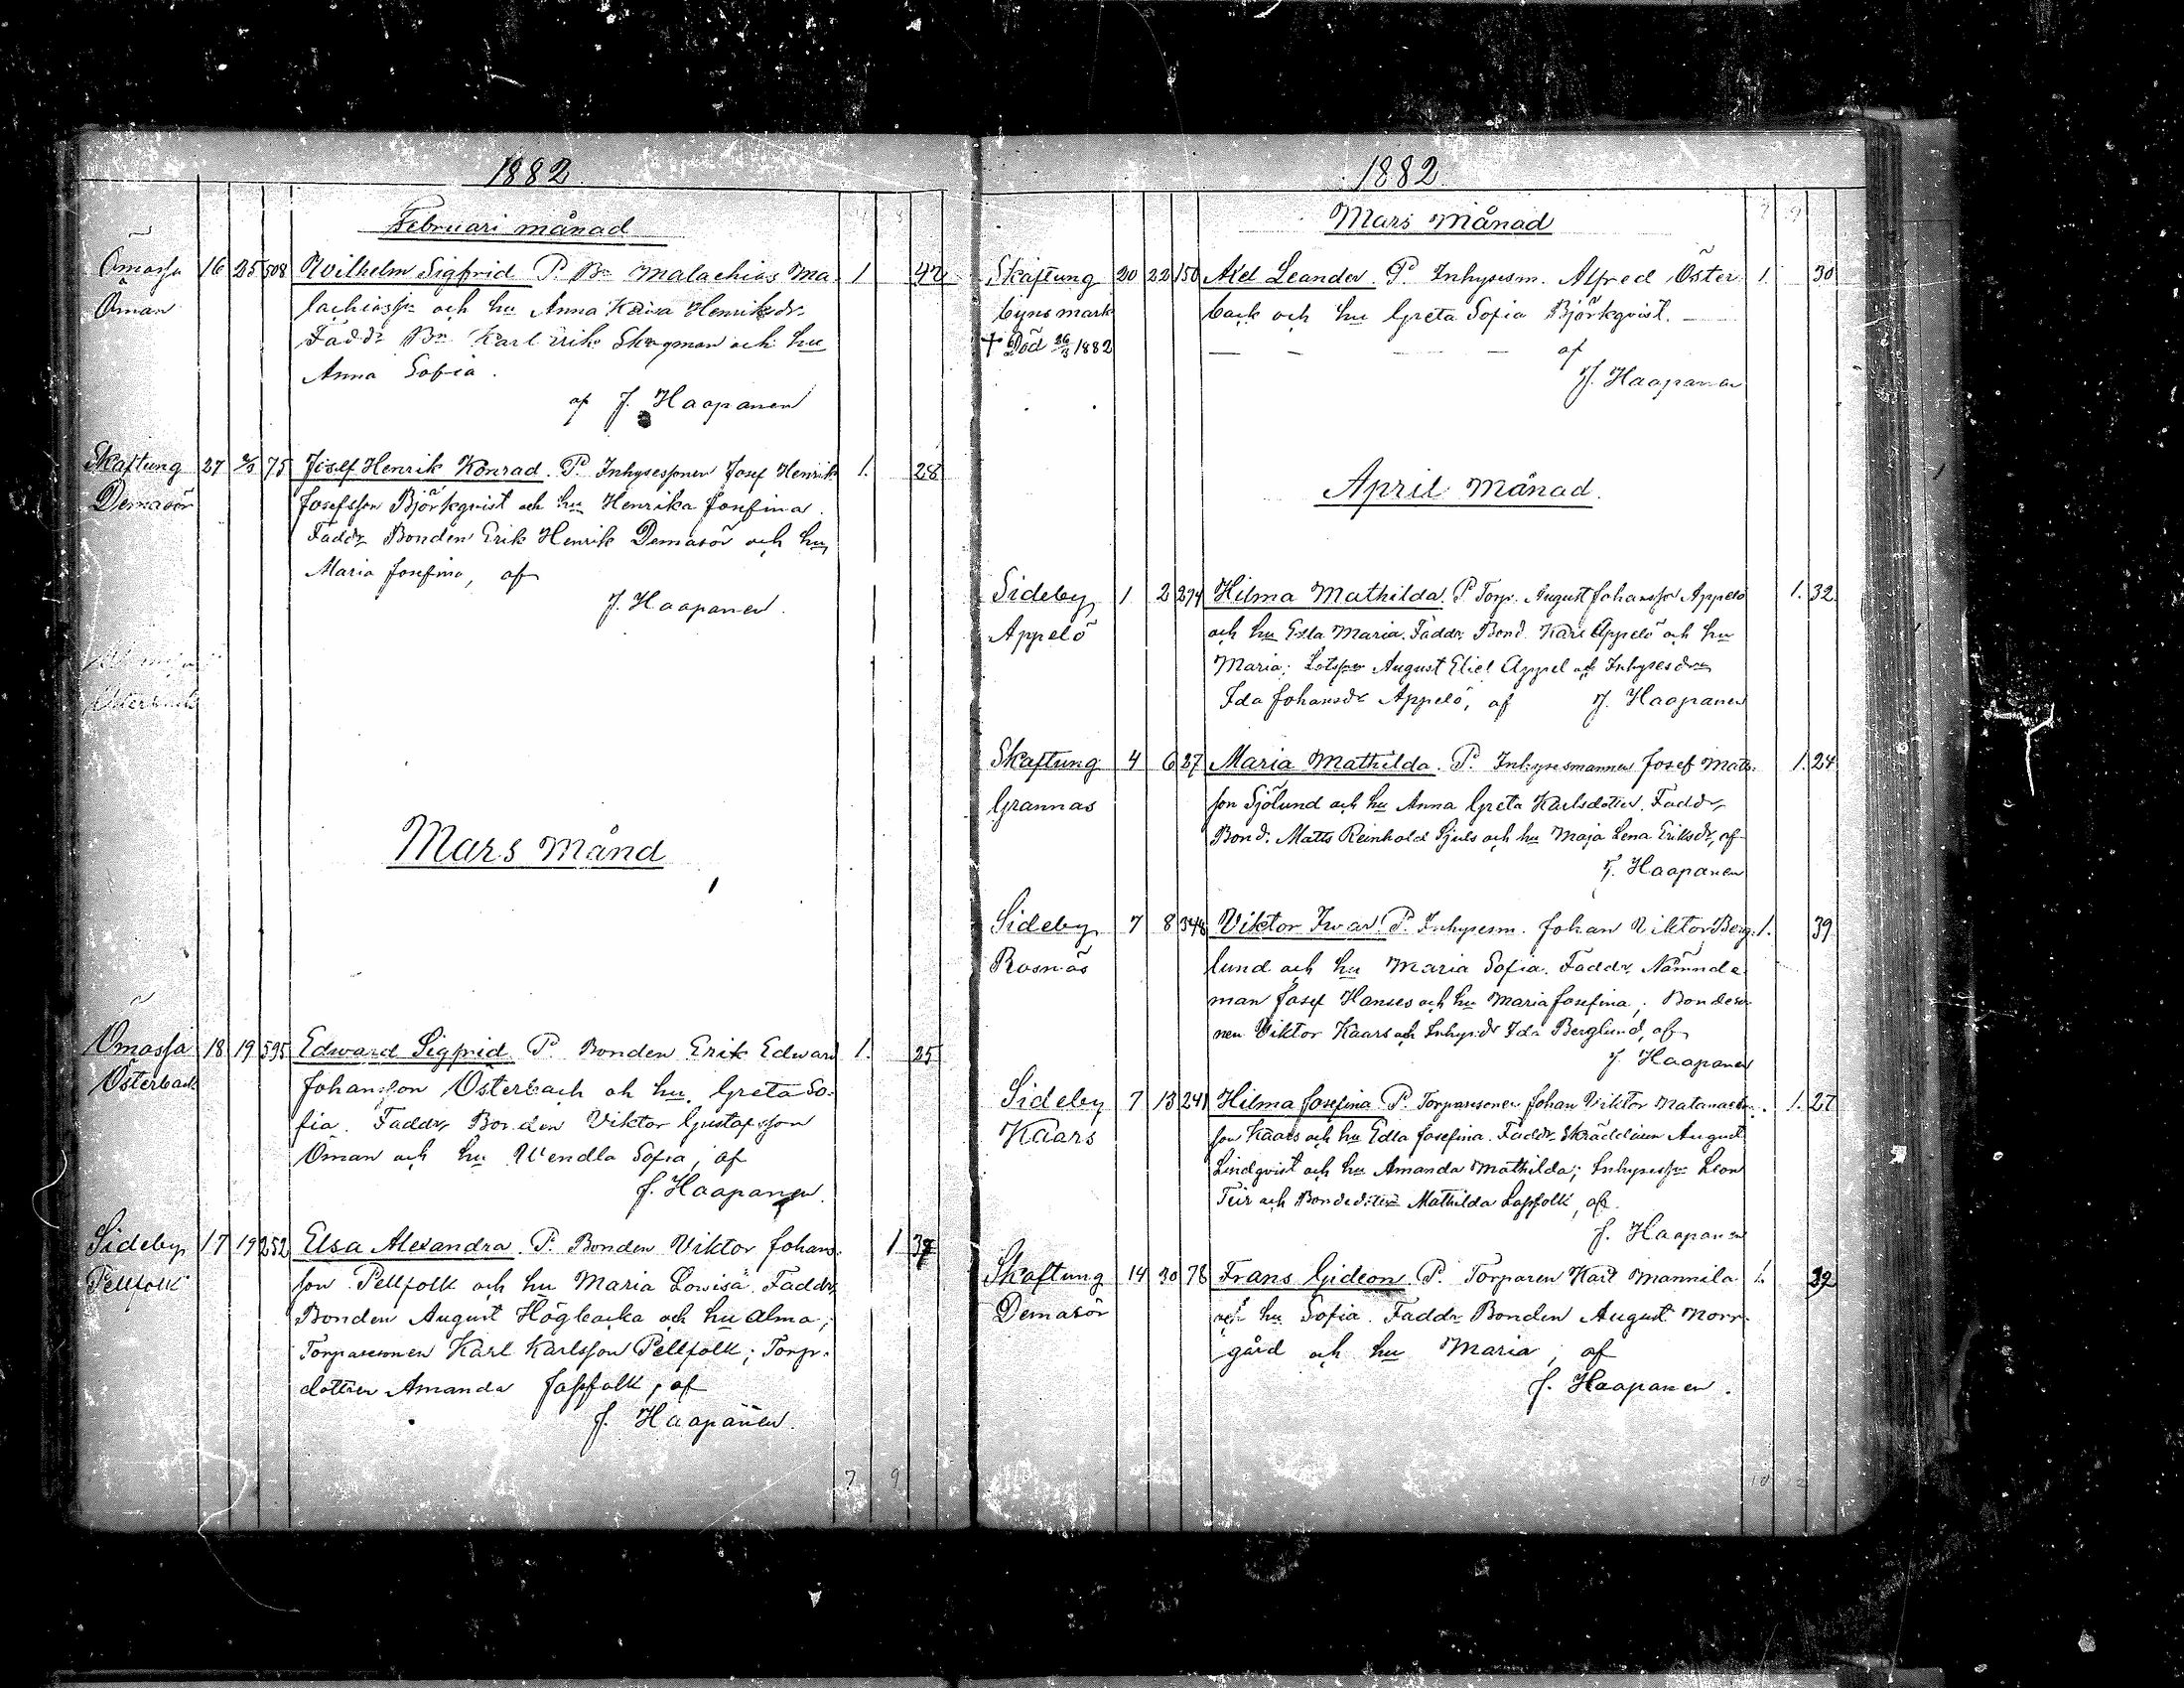 1882
Februari månad
Ömossa 16 25 508 Wilhelm Sigfrid P. Bn Malachias Ma- 1 42
Öman lachiassn och hu Anna Kaisa Henriksdr.
Faddr Bn Karl Erik Skogman och hu
Anna Sofia.
af J. Haapanen
Skaftung 27 2/3 75 Josef Henrik Konrad. P. Inhysessonen Josef Henrik 1. 28
Demasör Josefsson Björkqvist och hu Henrika Josefina.
Faddr Bonden Erik Henrik Demasör och hu
Maria Josefina, af
J. Haapanen.
Mars månd
Ömossa 18 19 595 Edward Sigfrid P. Bonden Erik Edward 1. 25
Österback Johansson Österback och hu. Greta So-
fia. Faddr Bonden Viktor Gustafsson
Öman och hu Wendla Sofia, af
J. Haapanen.
Sideby 17 19 252 Elsa Alexandra. P. Bonden Viktor Johans- 1 37
Pellfolk son Pellfolk och hu Maria Lowisa. Faddr,
Bonden August Högbacka och hu Alma;
Torparesonen Karl Karlsson Pellfolk; Torp.
dottren Amanda Jossfolk, af
J. Haapanen.
7 9
1882
Mars månad
Skaftung 20 22 150 Axel Leander. P. Inhysesm. Alfred Öster- 1. 30
Byns mark back och hu Greta Sofia Björkqvist.
† Död 26/3 1882 af
J. Haapanen
April månad.
Sideby 1 2 274 Hilma Mathilda. P. Torp. August Johansson Appelö 1. 32
Appelö och hu Edla Maria. Faddr. Bond. Karl Appelö och hu
Maria; Lotsson August Eliel Appel och Inhysesdr
Ida Johansdr Appelö, af J. Haapanen
Skaftung 4 6 27 Maria Mathilda. P. Inhysesmannen Josef Mats- 1. 24
Grannas son Sjölund och hu Anna Greta Karlsdotter. Faddr,
Bond. Matts Reinhold Sjuls och hu Maja Lena Eriksdr, af
J. Haapanen
Sideby 7 8 348 Viktor Iwar P. Inhysesm. Johan Viktor Berg- 1. 39
Rosnäs lund och hu Maria Sofia. Faddr. Nämnde-
man Josef Hanses och hu Maria Josefina; Bondeso-
nen Viktor Kaars och Inhys.dr Ida Berglund, af
J. Haapanen
Sideby 7 13 241 Hilma Josefina P. Torparesonen Johan Viktor 1. 27
Kaars son Kaars och hu Edla Josefina. Faddr. Skräddaren August
Lindqvist och hu Amanda Mathilda; Inhysessn Leon
Teir och Bondedottern Mathilda Lassfolk, af.
J. Haapanen
Skaftung 14 30 78 Frans Gideon P. Torparen Karl Mannila 1. 32
Demasör och hu Sofia. Faddr Bonden August Norr-
gård och hu Maria, af
J. Haapanen.